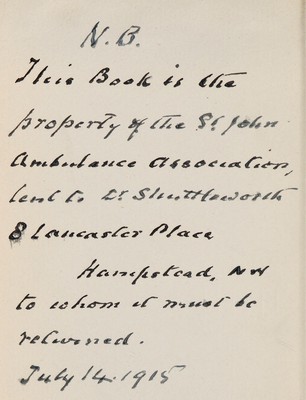 N.B.
This Book is the
property of the St. John
Ambulance Association,
lent to Dr Shuttleworth
8 Lancaster Place
Hampstead, NW
to whom it must be
returned.
July 14. 1915